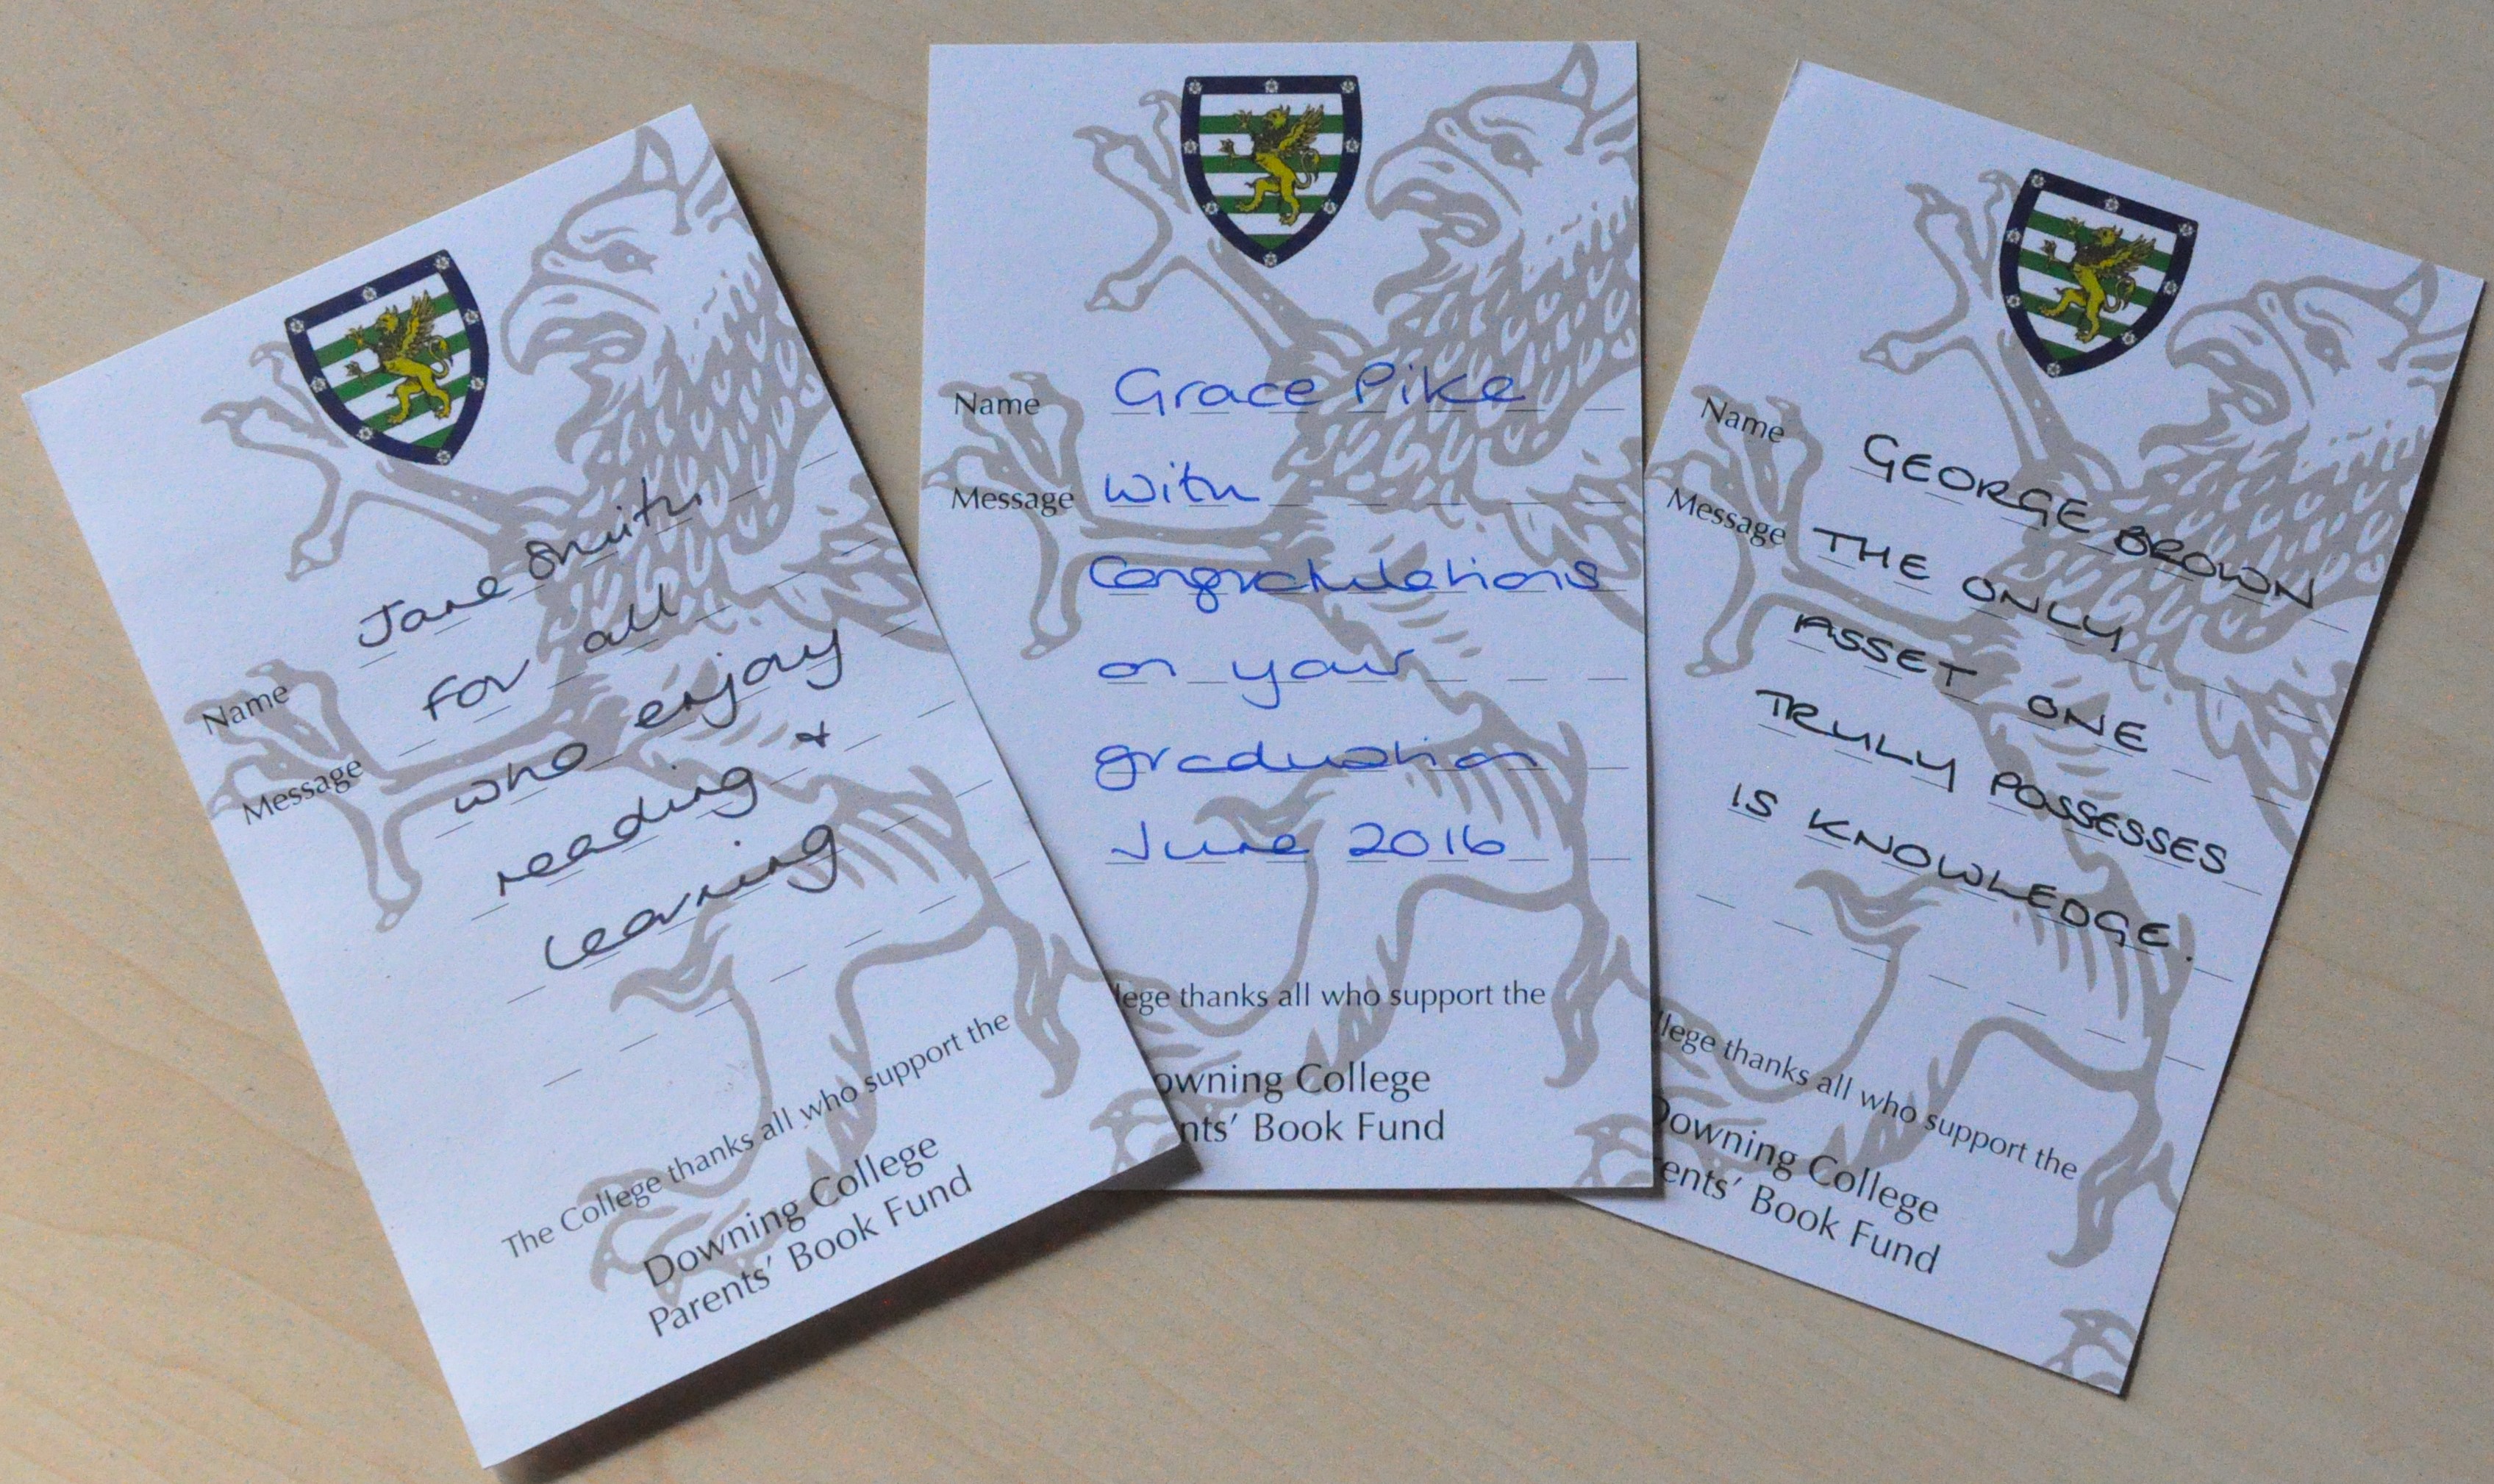 Name Jane Smith
Message for all
who enjoy
reading +
learning
The College thanks all who support the
Downing College
Parents' Book Fund
Name Grace Pike
Message With
Congratulations
on your
graduation
June 2016
lege thanks all who support the
owning College
nts' Book Fund
Name GEORGE BROWN
Message THE ONLY
ASSET ONE
TRULY POSSESSES
IS KNOWLEDGE.
llege thanks all who support the
Downing College
ents' Book Fund